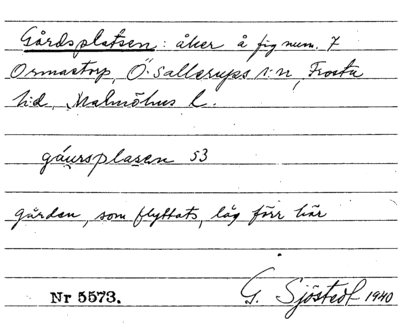 Gårdsplatsen: åker å fig num. 7
Ormastorp, Ö. Sallerups s:n, Frosta
h:d, Malmöhus l.
gáursplasen 53
gården, som flyttats, låg förr här
Nr 5573. G. Sjöstedt 1940